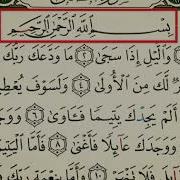 بِسْمِ ٱللَّهِ ٱلرَّحْمَٰنِ ٱلرَّحِيمِ
وَٱلَّيْلِ إِذَا سَجَىٰ ٢ مَا وَدَّعَكَ رَبُّكَ
لَّكَ مِنَ ٱلْأُولَىٰ ٤ وَلَسَوْفَ يُعْطِي
أَلَمْ يَجِدْكَ يَتِيمًا فَـَٔاوَىٰ ٦ وَوَجَدَ
وَوَجَدَكَ عَآئِلًا فَأَغْنَىٰ ٨ فَأَمَّا ٱلْيَتِي
وَأَمَّا بِنِعْمَةِ رَبِّكَ